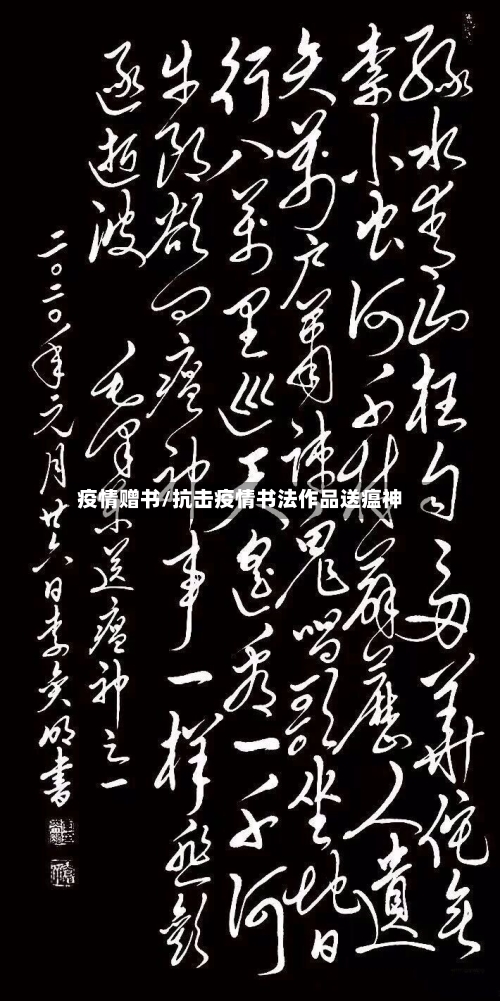 绿水青山枉自多華佗無
奈小虫何千村薜荔人遺
矢萬户萧疏鬼唱歌坐地日
行八萬里巡天遥看一千河
牛郎欲问瘟神事一样悲歡
逐逝波
毛泽东送瘟神之一
二〇二〇年元月廿六日李明書
疫情赠书/抗击疫情书法作品送瘟神